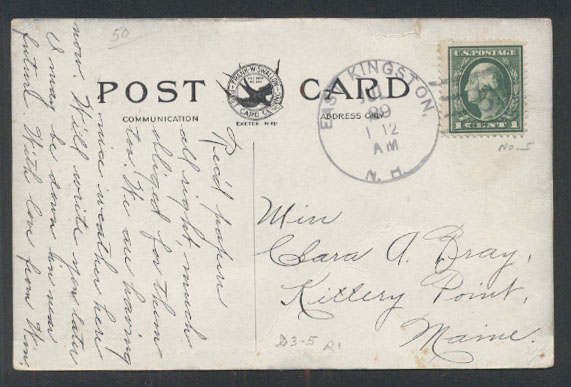 50
POST CARD
FRANK W. SWALLOW
CARD CO.
EXETER N.H.
COMMUNICATION
ADDRESS ONLY
EAST KINGSTON,
29
12
AM
N. H.
U.S. POSTAGE
1 CENT 1
NO-5
Rec'd papers
all right, much
obliged for them
too. We are having
nice weather here
now. Will write you later
I may be down in near
future. With love from Wm
Miss
Clara A. Bray,
Kittery Point,
Maine.
D3-5